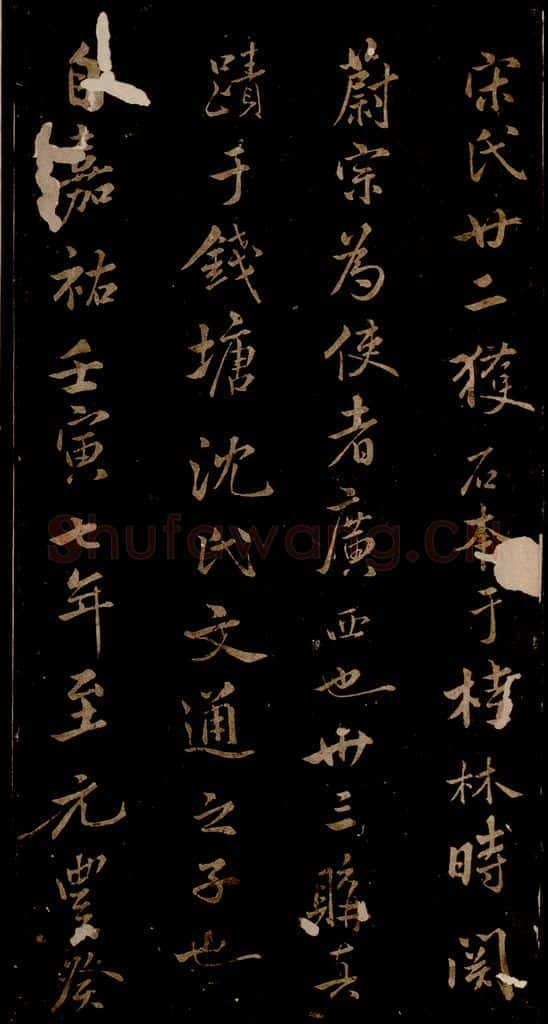 宋氏廿二獲石本于桂林時關
蔚宗為使者廣西也卅三購真
蹟于錢塘沈氏文通之子也
自嘉祐壬寅七年至元豐癸
Shufawang.cn